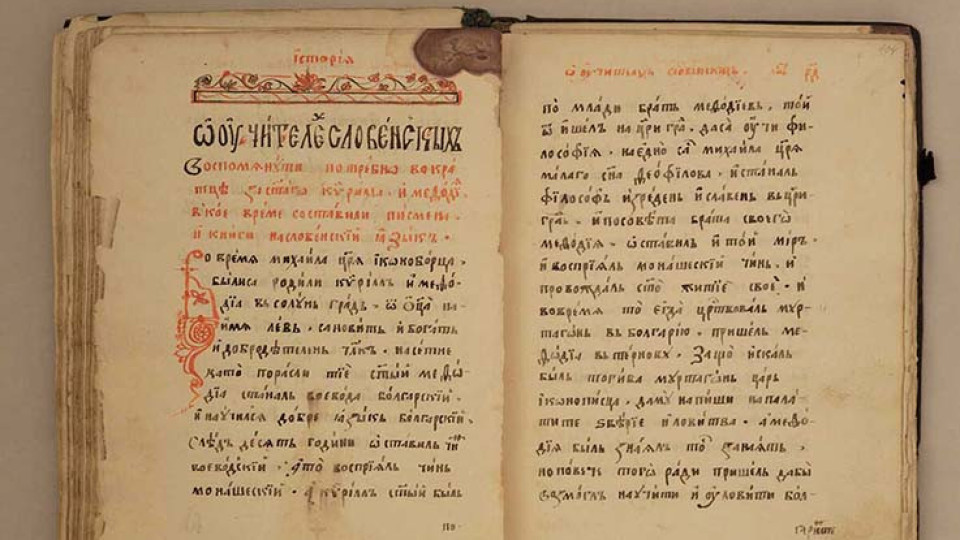 їсторїѧ
Ѿ ѹчителеⷯ словенскиⷯхъ
Воспомѧнути потребно вокра-
тцѣ за стаго кѷрїла, и меѳодїѧ
в кое време составили писмена,
и книги на словенскїй ꙗзыкъ.
Во времѧ михаила цⷬѧ їконоборца,
былиса родили кѷрїлъ и меѳо-
дїѧ въ солунь градъ. ѿ ѻтца на
имѧ левъ. сановитъ и богатъ
и добродѣтелень чл҃къ. насетне
като порасли тїе ст҃ый меѳо-
дїа станалъ воевода болгарскїй.
и научилсѧ добре ꙗзыкъ болгарскїй
Слѣдъ десѧть години ѡставилъ чинⸯ
воеводскїй. и воспрїѧлъ чинь
монашескїй. А кѷрїлъ ст҃ый былъ
по-
ѿ учителѧхъ словенскихъ.
по млади братъ меѳодїевъ, той
ѿишелъ на цр҃и граⷣ, даса ѹчи фи-
лософїѧ. наедно саⷭ михаила цр҃ѧ
малаго сн҃а ѳеофилова. и станалъ
фїлософъ изреденъ и славенъ въ цр҃и-
граⷣ. и посовѣта брата своегѡ
меѳодїѧ. ѡставилъ и той міръ.
и воспрїѧлъ монашескїй чинь. и
провождалъ ст҃о житїе свое. и
вовремѧ то егда цр҃твовалъ мур-
тагонъ въ болгарїю. пришелъ ме-
ѳодїа въ терновъ. Защо искалъ
былъ тогива муртагонъ царь
їконописца. да му напиши на пала-
тите ѕвѣрїе и ловитва. а меѳо-
дїѧ былъ зналъ тоⷵ занаѧтъ,
но повѣче того ради пришелъ дабы
возмоглъ научити и уловити бол-
гарите